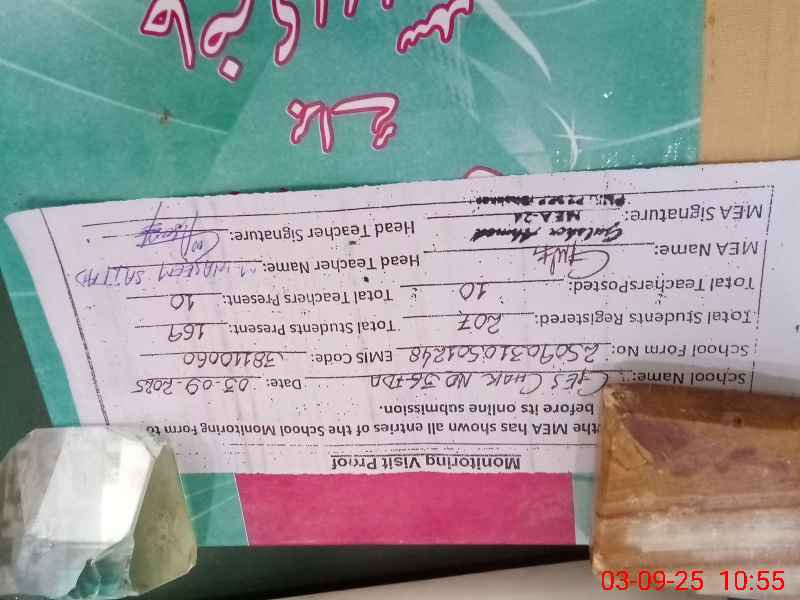 Monitoring Visit Proof
the MEA has shown all entries of the School Monitoring Form to
before its online submission.
School Name: GES CHAK NO 36/TDA Date: 03-09-2025
School Form No: 2509031050 1248 EMIS Code: 38110060
Total Students Registered: 207 Total Students Present: 169
Total TeachersPosted: 10 Total Teachers Present: 10
MEA Name: Head Teacher Name: M. WASEEM SAJJAD
Gulsher Ahmad
MEA Signature: MEA-21 Head Teacher Signature:
03-09-25 10:55